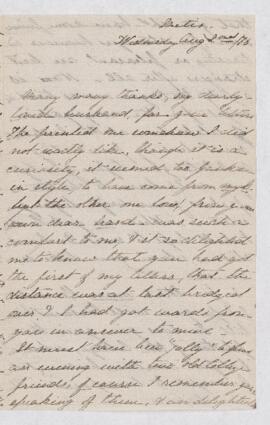 Metis.
Wednesday Aug 2nd/76
Many many thanks, my dearly
loved husband, for your letters
The printed one somehow I did
not really like, though it is a
curiosity, it seemed too
in style to have come from my
but the other one too, from your
own dear hand was such a
comfort to me & it so delighted
me to know that you had got
the first of my letters, that the
distance was at last bridged
over & I had got words from
you in answer to mine
It must have been "jolly"
an evening with our old
friends, of course I remember your
speaking of them, & am delighted